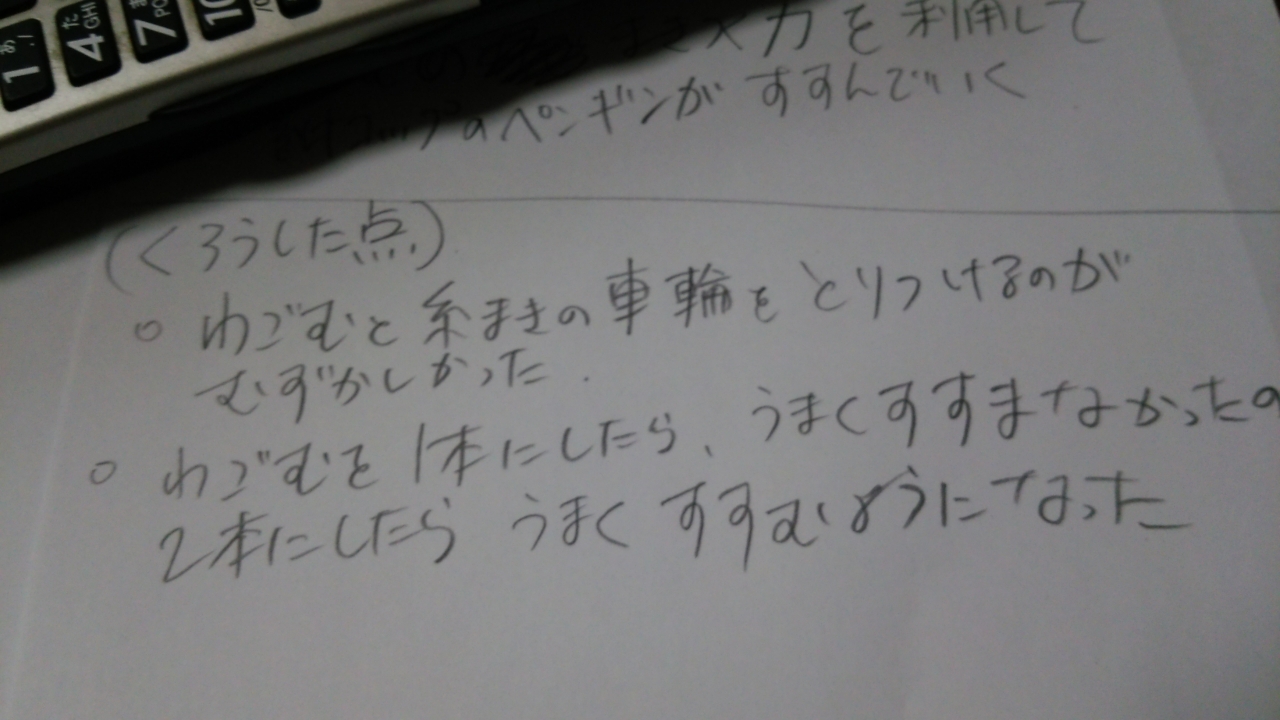 1 あ ./
4 た GHI
7 ま
10
の
力を利用して
のペンギンがすすんでいく
(くろうした点)
○ わごむと糸まきの車輪をとりつけるのが
むずかしかった.
○ わごむを1本にしたら、うまくすすまなかったの
2本にしたら うまくすすむようになった